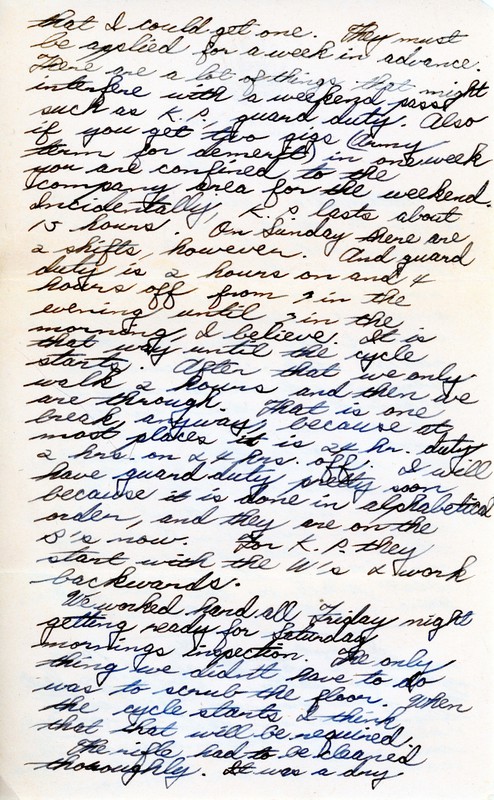 that I could get one. They must
be applied for a week in advance.
There are a lot of things that might
interfere with a weekend pass
such as K.P., guard duty. Also
if you get two gigs (Army
term for demerit) in one week
you are confined to the
company area for the weekend.
Incidentally, K.P. lasts about
15 hours. On Sunday there are
2 shifts, however. And guard
duty is 2 hours on and 4
hours off from in the
evening until in the
morning, I believe. It is
that way until the cycle
starts. After that we only
walk 2 hours and then we
are through. That is one
break, anyway, because at
most places it is 24 hr. duty
2 hrs. on 2 4 hrs. off. I will
have guard duty pretty soon
because it is done in alphabetical
order, and they are on the
S's now. For K.P. they
start with the W's & work
backwards.
We worked hard all Friday night
getting ready for Saturday
mornings inspection. The only
thing we didn't have to do
was to scrub the floor. When
the cycle starts I think
that that will be required.
The rifle had to be cleaned
thoroughly. It was a dry